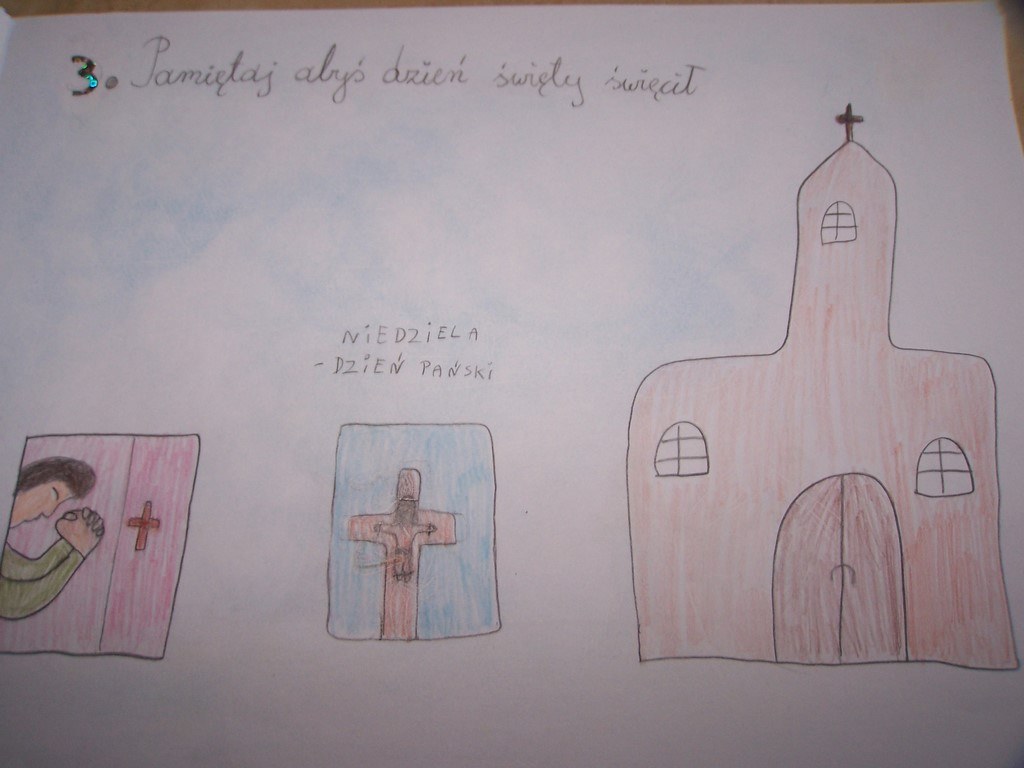 3. Pamiętaj abyś dzień święty święcił
NIEDZIELA
- DZIEŃ PAŃSKI